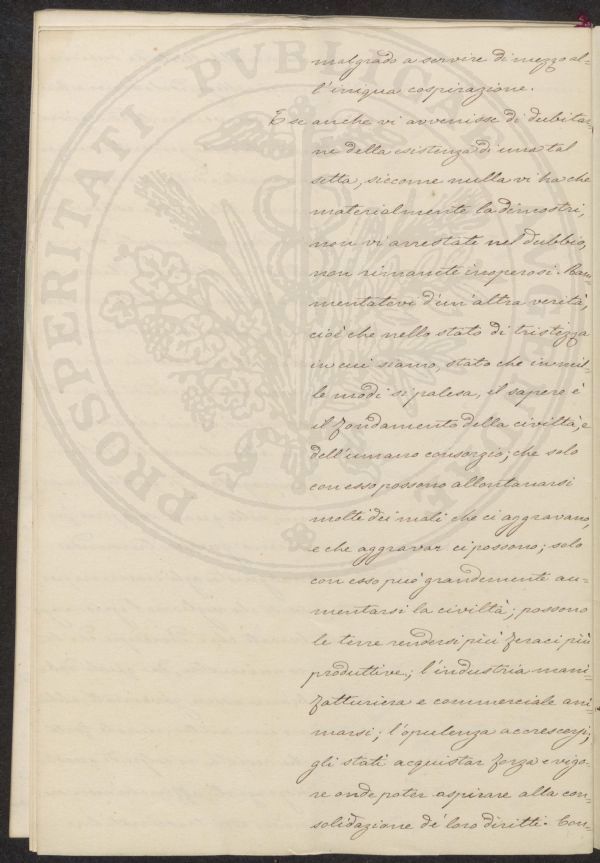 malgrado a servire di mezzo al=
l'iniqua cospirazione.
E se anche vi avvenisse di dubitar
ne della esistenza di una tal
setta, siccome nulla vi ha che
materialmente la dimostri,
non vi arrestate nel dubbio,
non rimanete inoperosi. Ram=
mentatevi d'un'altra verità,
cioè che nello stato di tristezza
in cui siamo, stato che in mil=
le modi si palesa, il sapere è
il fondamento della civiltà, e
dell'umano consorzio; che solo
con esso possono allontanarsi
molti dei mali che ci aggravano,
e che aggravar ci possono; solo
con esso può grandemente au=
mentarsi la civiltà; possono
le terre rendersi più feraci più
produttive; l'industria mani=
fatturiera e commerciale ani=
marsi; l'opulenza accrescersi;
gli stati acquistar forza e vigo=
re onde poter aspirare alla con=
solidazione de' loro diritti. Con=
PROSPERITATI PUBLICAE